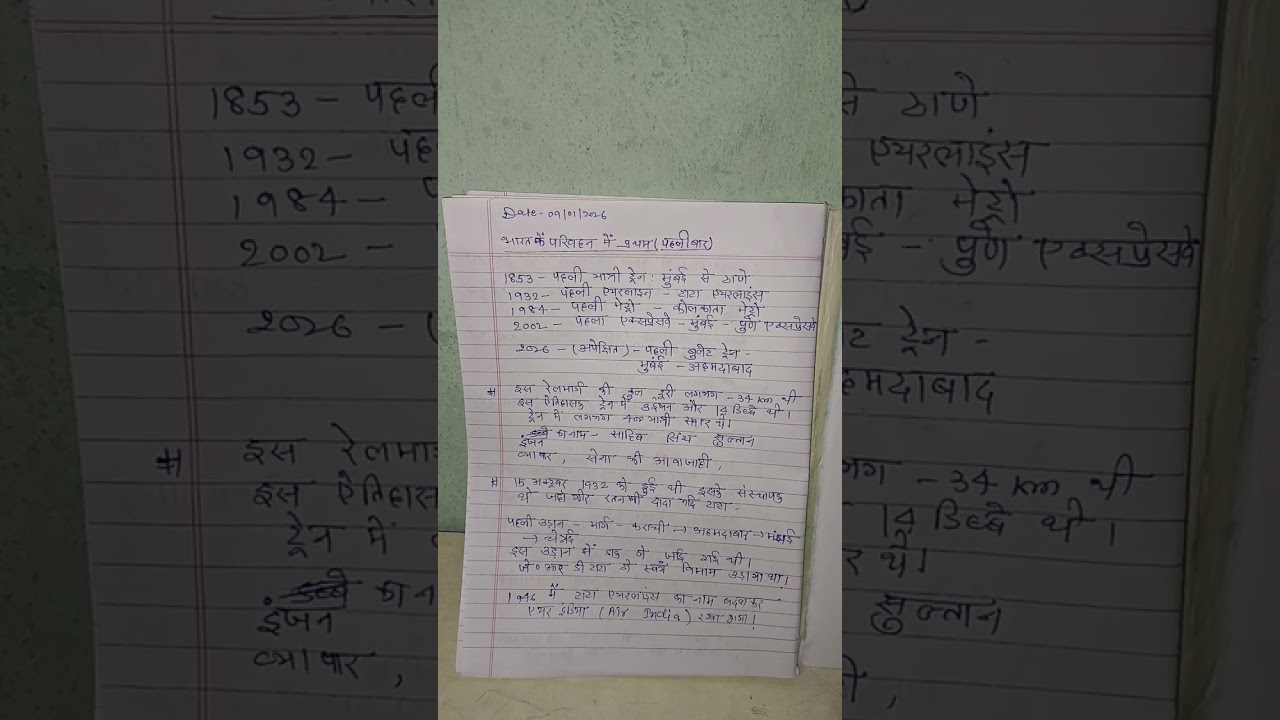 Date - 09/01/2026
भारत के परिवहन में प्रथम (पहली बार)
1853 – पहली यात्री ट्रेन : मुंबई से ठाणे
1932 – पहली एयरलाइन – टाटा एयरलाइंस
1984 – पहली मेट्रो – कोलकाता मेट्रो
2002 – पहला एक्सप्रेसवे – मुंबई – पुणे एक्सप्रेसवे
2026 – (अपेक्षित) – पहली बुलेट ट्रेन –
मुंबई – अहमदाबाद
# इस रेलमार्ग की कुल दूरी लगभग – 34 km थी
इस ऐतिहासिक ट्रेन में 3 इंजन और 14 डिब्बे थी।
ट्रेन में लगभग 400 यात्री सवार थे।
इंजन का नाम – साहिब सिंध सुल्तान
व्यापार , सेना की आवाजाही ,
# 15 अक्टूबर 1932 को हुई थी इसके संस्थापक
थे जहाँगीर रतनजी दादा भाई टाटा -
पहली उड़ान – मार्ग – कराची → अहमदाबाद → मुंबई
→ चेन्नई
इस उड़ान में डाक ले जाई गई थी।
जे० आर डी टाटा ने स्वयं विमान उड़ाया था।
1946 में टाटा एयरलाइंस का नाम बदलकर
एयर इंडिया (Air India) रखा गया।